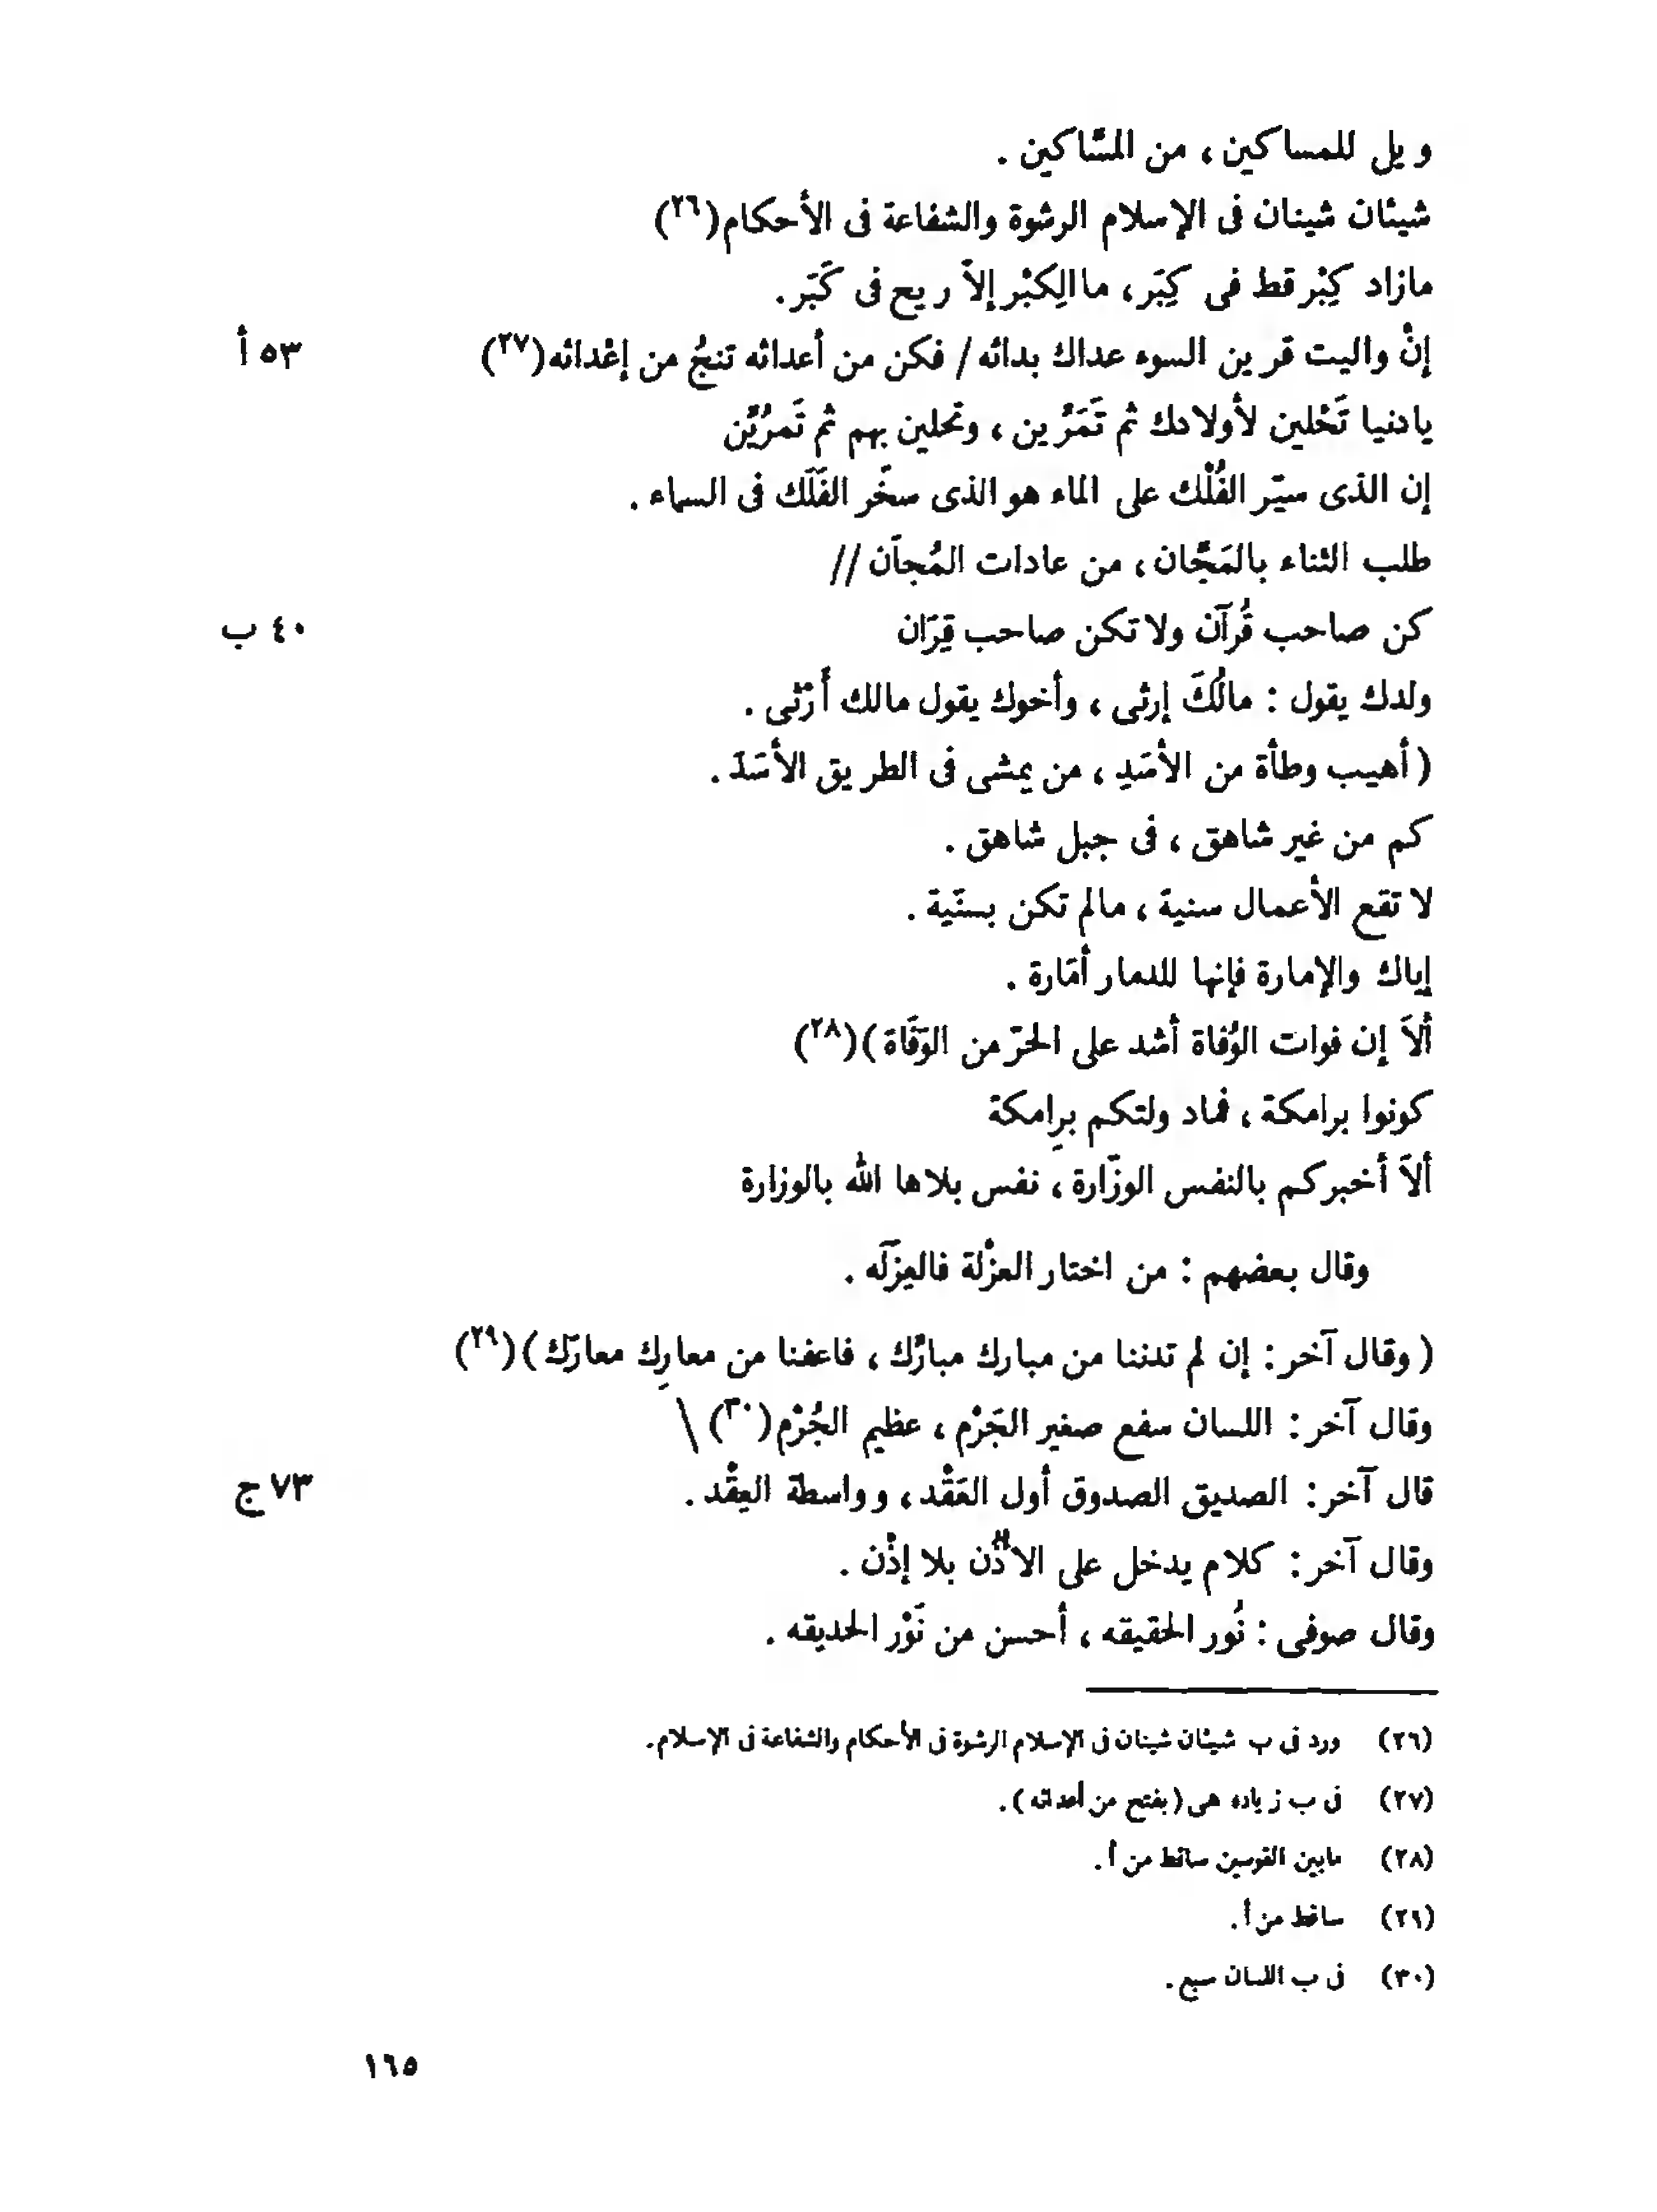 ويل للمساكين ، من المسَّاكين .
شيئان شينان فى الإسلام الرشوة والشفاعة فى الأحكام(٢٦)
مازاد كِبْر قط فى كِبَر، ماالِكبْر إلاَّ ريح فى كَبَر .
إنْ واليت قرين السوء عداك بدائه / فكن من أعدائه تنجُ من إعْدائه(٢٧) ٥٣ أ
يادنيا تَحْلين لأولادك ثم تَمَرِّين ، وتحلين بهم ثم تَمرُيِّن
إن الذى سيّر الفُلْك على الماء هو الذى سخَّر الفَلَك فى السماء .
طلب الثناء بالمَجَّان ، من عادات المُجاَّن //
كن صاحب قُرآن ولا تكن صاحب قِرَان ٤٠ ب
ولدك يقول : مالُكَ إرثى ، وأخوك يقول مالك أَرَثى .
( أهيب وطأة من الأسَدِ ، من يمشى فى الطريق الأسَدَ .
كم من غير شاهق ، فى جبل شاهق .
لا تقع الأعمال سنية ، مالم تكن بسنّية .
إياك والإمارة فإنها للدمار أمَارة .
ألاَ إن فوات الوُفاة أشد على الحرّ من الوَفَاة )(٢٨)
كونوا برامكة ، فماد ولتكم برِامكة
ألاَ أخبركم بالنفس الوزَّارة ، نفس بلاها الله بالوزارة
وقال بعضهم : من اختار العزْلة فالعِزّله .
( وقال آخر : إن لم تدننا من مبارك مبارَّك ، فاعفنا من معارِك معارّك )(٢٩)
وقال آخر : اللسان سفع صغير الجَرْم ، عظيم الجُرْم(٣٠) \
قال آخر : الصديق الصدوق أول العَقْد ، وواسطة العِقْد . ٧٣ ج
وقال آخر : كلام يدخل على الاذُن بلا إذْن .
وقال صوفى : نُور الحقيقه ، أحسن من نَوْر الحديقه .
(٢٦) ورد فى ب شيئان شينان فى الإسلام الرشوة فى الأحكام والشفاعة فى الإسلام .
(٢٧) فى ب زياده هى ( بفتح من أعدائه ) .
(٢٨) مابين القوسين ساقط من أ .
(٢٩) ساقط من أ .
(٣٠) فى ب اللسان سبع .
١٦٥